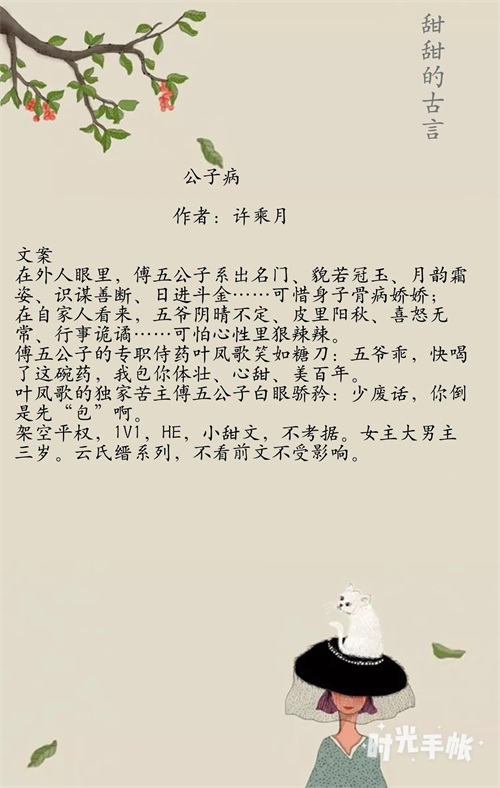 甜甜的古言
公子病
作者：许乘月
文案
在外人眼里，傅五公子系出名门、貌若冠玉、月韵霜
姿、识谋善断、日进斗金……可惜身子骨病娇娇；
在自家人看来，五爷阴晴不定、皮里阳秋、喜怒无
常、行事诡谲……可怕心性里狠辣辣。
傅五公子的专职侍药叶凤歌笑如糖刀：五爷乖，快喝
了这碗药，我包你体壮、心甜、美百年。
叶凤歌的独家苦主傅五公子白眼骄矜：少废话，你倒
是先“包”啊。
架空平权，1V1，HE，小甜文，不考据。女主大男主
三岁。云氏缙系列，不看前文不受影响。
时光手帐